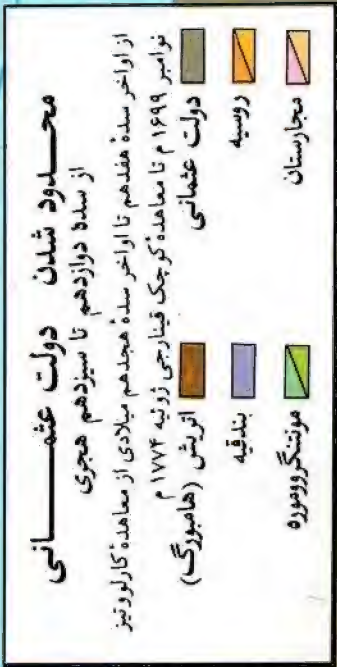 محدود شدن دولت عثمانی
از سده دوازدهم تا سیزدهم هجری
از اواخر سدهٔ هفدهم تا اواخر سدهٔ هیجدهم میلادی از معاهدهٔ کارلووتیز
نوامبر ۱۶۹۹ م تا معاهدهٔ کوچک قینارجی ژوئیه ۱۷۷۴ م
دولت عثمانی
اتریش (هامبورگ)
روسیه
بندقیه
مجارستان
مونتنگرووموره